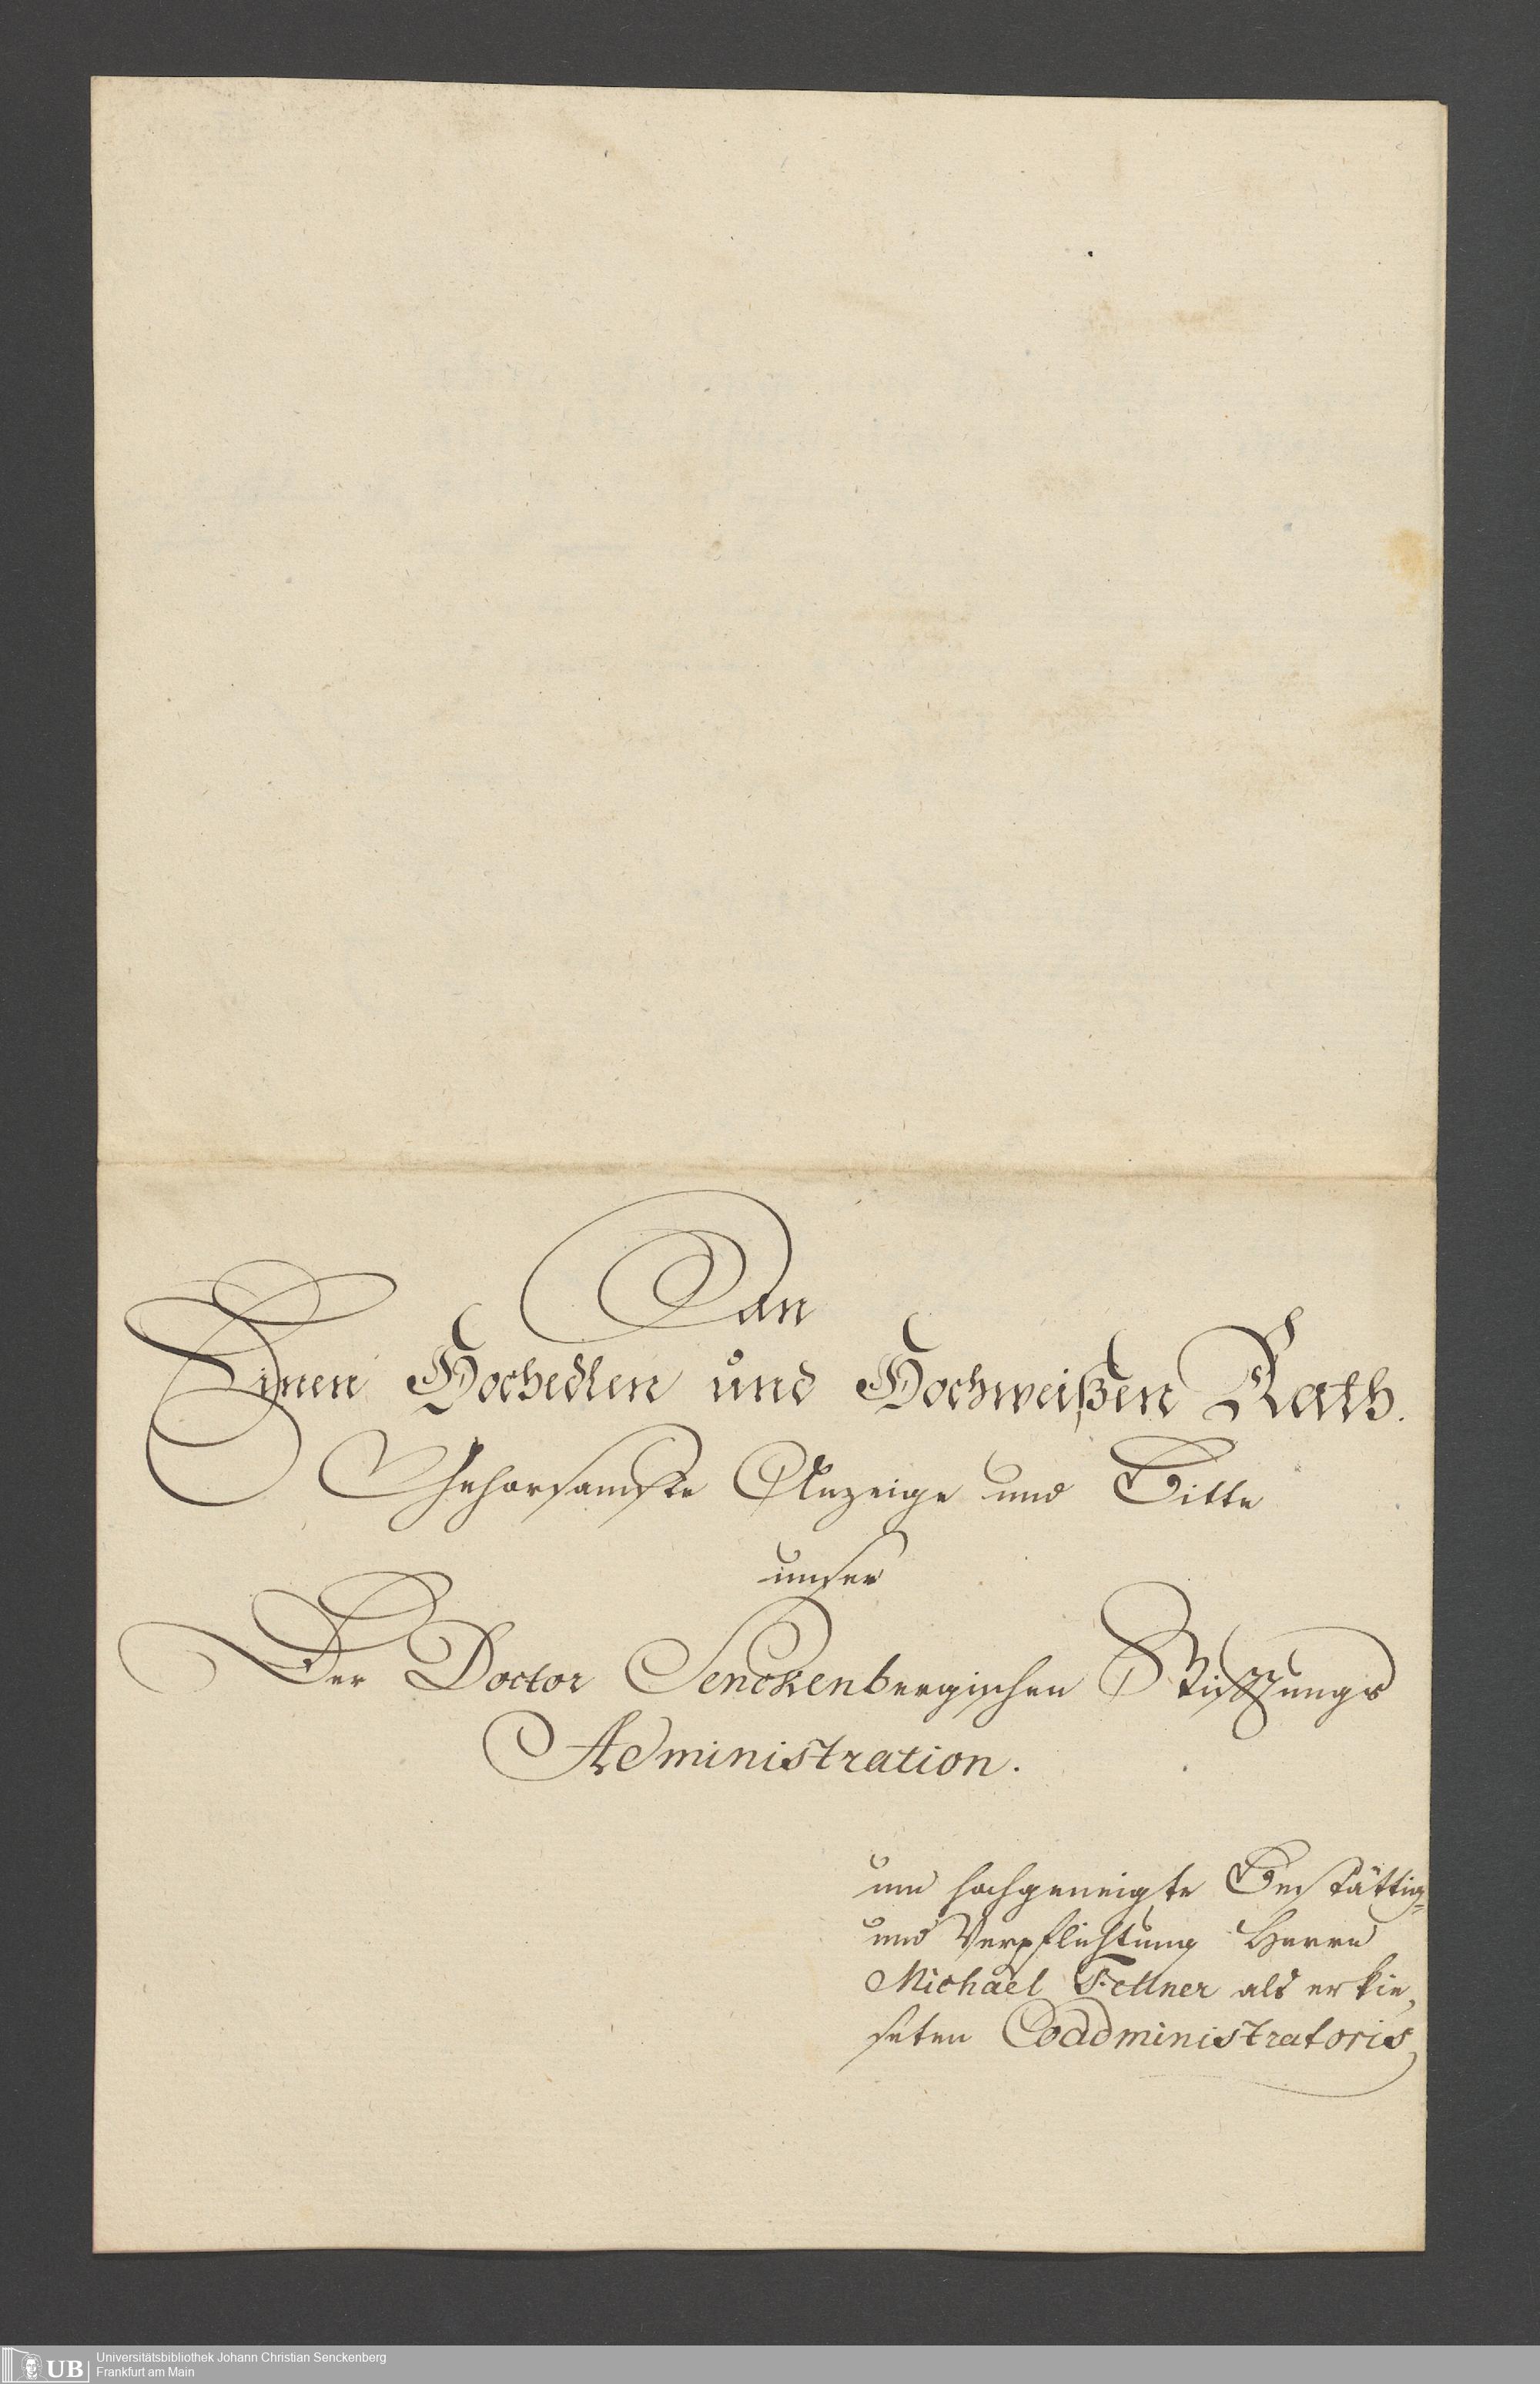 An
Einen Hochedlen und Hochweißen Rath.
Gehorsamste Anzeige und Bitte
unser
Der Doctor Senckenbergischen Stiftungs
Administration.
um hochgeneigte Bestättig=
und Verpflichtung Herrn
Michael Fellner als erkie,
seten Coadministratoris,
UB
Universitätsbibliothek Johann Christian Senckenberg
Frankfurt am Main